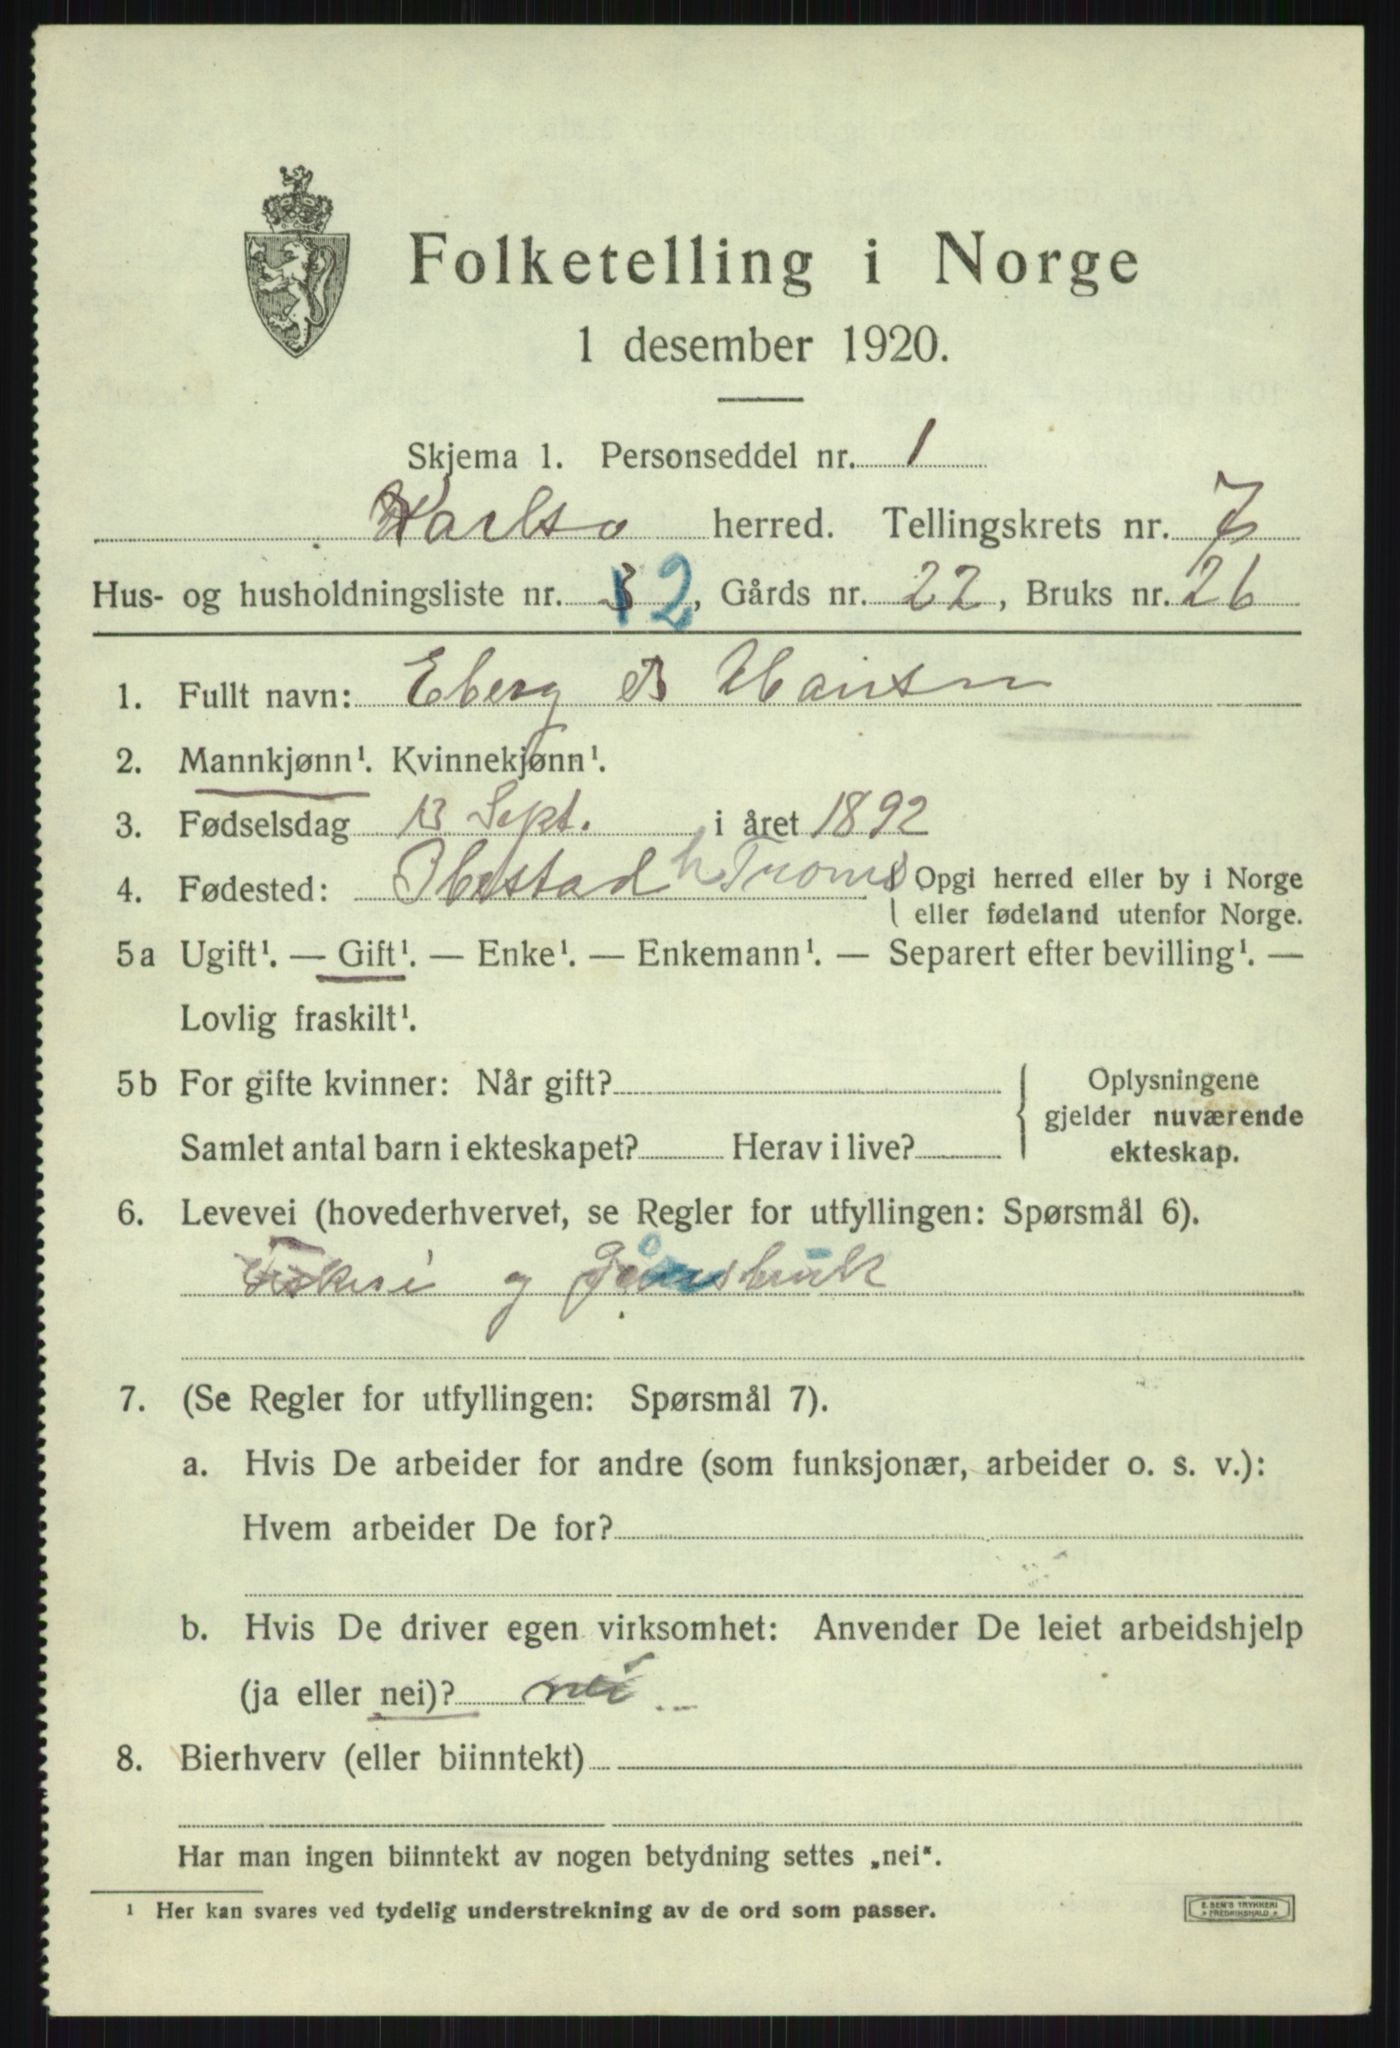 Folketelling i Norge
1 desember 1920.
Skjema 1. Personseddel nr. 1
Karlsø herred. Tellingskrets nr. 7
Hus- og husholdningsliste nr. 12, Gårds nr. 22, Bruks nr. 26
1. Fullt navn: Eberg B Hansen
2. Mannkjønn¹. Kvinnekjønn¹.
3. Fødselsdag 13 Sept. i året 1892
4. Fødested: Ibestad h Troms Opgi herred eller by i Norge
eller fødeland utenfor Norge.
5a Ugift¹. — Gift¹. — Enke¹. — Enkemann¹. — Separert efter bevilling¹. —
Lovlig fraskilt¹.
5b For gifte kvinner: Når gift?
Samlet antal barn i ekteskapet? Herav i live?
Oplysningene
gjelder nuværende
ekteskap.
6. Levevei (hovederhvervet, se Regler for utfyllingen: Spørsmål 6).
Fiskeri og Gårdsbruk
7. (Se Regler for utfyllingen: Spørsmål 7).
a. Hvis De arbeider for andre (som funksjonær, arbeider o. s. v.):
Hvem arbeider De for?
b. Hvis De driver egen virksomhet: Anvender De leiet arbeidshjelp
(ja eller nei)? nei
8. Bierhverv (eller biinntekt)
Har man ingen biinntekt av nogen betydning settes „nei“.
¹ Her kan svares ved tydelig understrekning av de ord som passer.
E. SEM'S TRYKKERI
FREDRIKSHALD